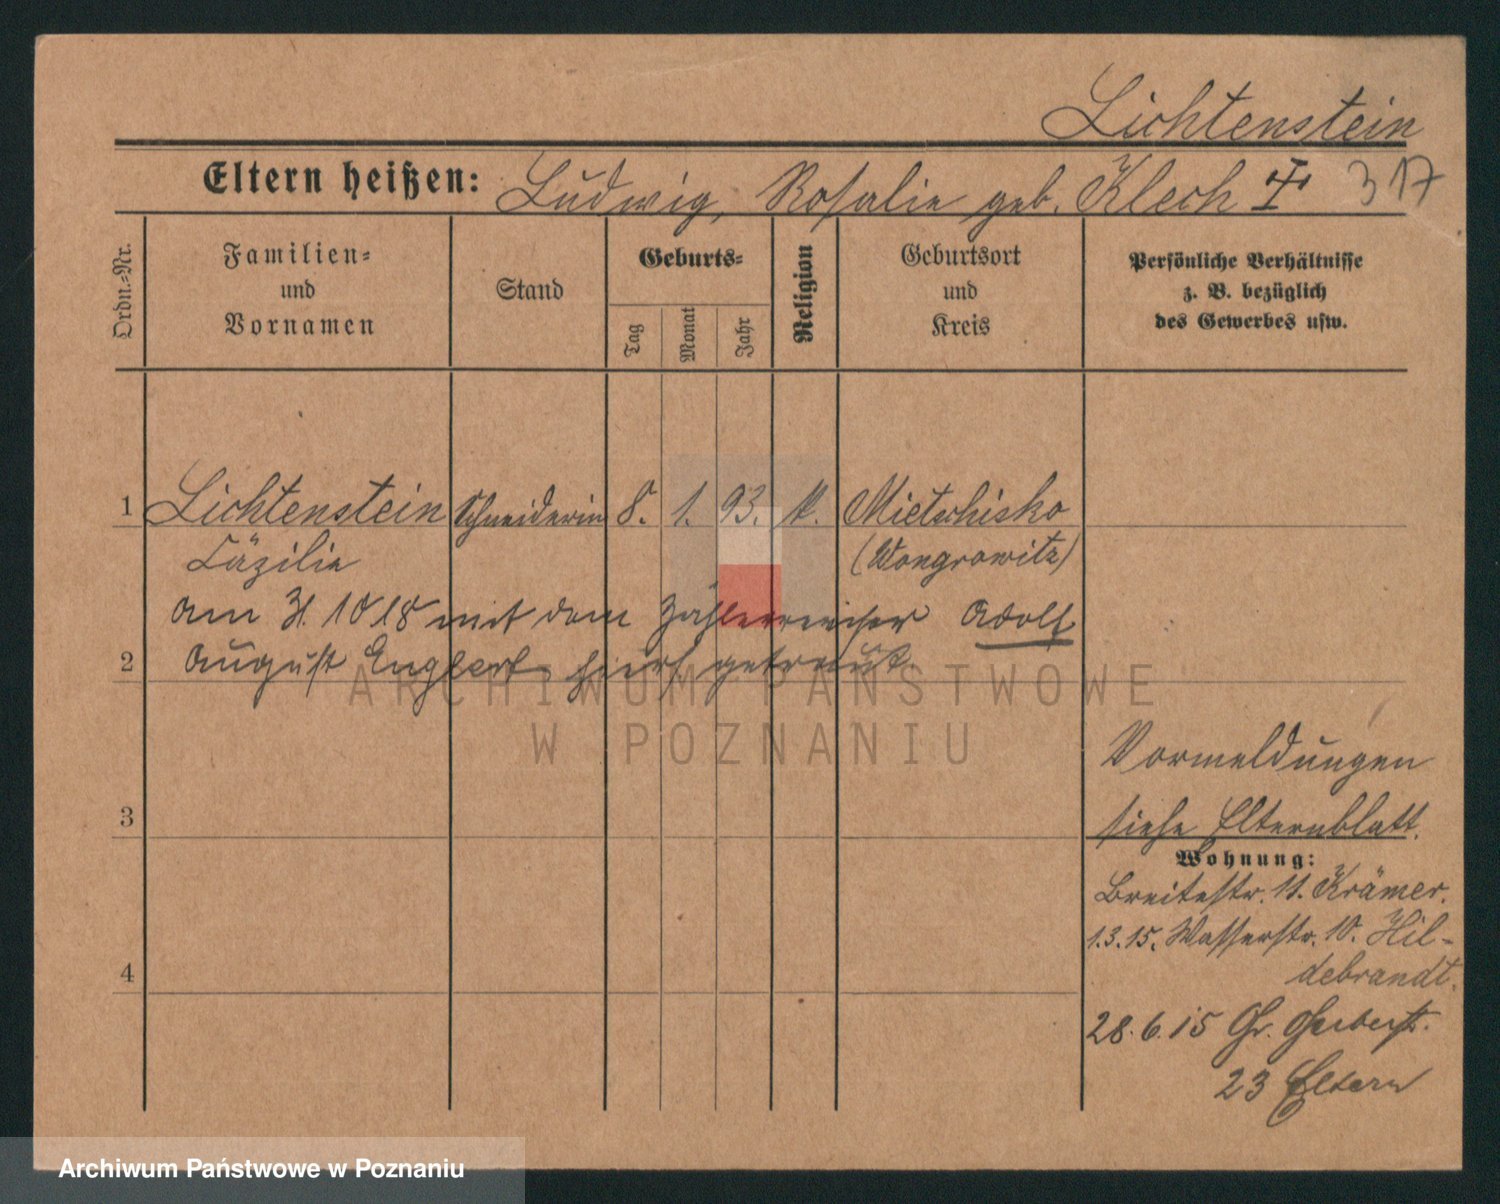 Lichtenstein
Eltern heißen: Ludwig, Rosalie geb. Klech 317
Ordn.-Nr.
Familien-
und
Vornamen
Stand
Geburts-
Tag
Monat
Jahr
Religion
Geburtsort
und
Kreis
Persönliche Verhältnisse
z. B. bezüglich
des Gewerbes usw.
1 Lichtenstein Schneiderin 8. 1. 93. k. Mietschisko
Cäzilie (Wongrowitz)
am 31. 10 18 mit dem Adolf
2 August Englert hier getraut.
ARCHIWUM PAŃSTWOWE
W POZNANIU
Vormeldungen
3 siehe Elternblatt.
Wohnung:
Breitestr. 11. Krämer.
1.3.15. Wasserstr. 10. Hil-
4 debrandt.
28.6.15 Gr. Gerberst.
23 Eltern
Archiwum Państwowe w Poznaniu